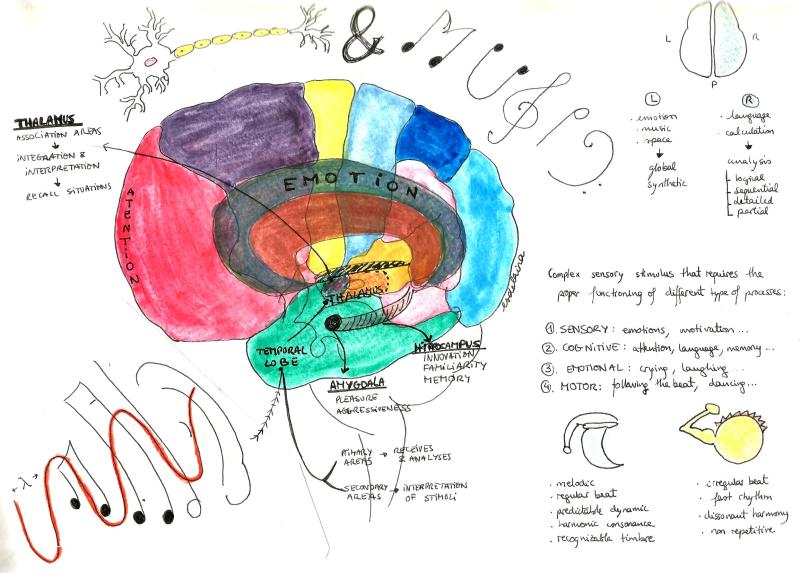 &
THALAMUS
ASSOCIATION AREAS
INTEGRATION &
INTERPRETATION
RECALL SITUATIONS
ATENTION
EMOTION
THALAMUS
TEMPORAL
LOBE
AMYGDALA
PLEASURE
AGGRESSIVENESS
HIPPOCAMPUS
INNOVATION
FAMILIARITY
MEMORY
PRIMARY
AREAS
RECEIVES
& ANALYSES
SECONDARY
AREAS
INTERPRETATION
OF STIMULI
λ
L
R
P
L
· emotion
· music
· space
global
synthetic
R
· language
· calculation
analysis
logical
sequential
detailed
partial
Complex sensory stimulus that requires the
proper functioning of different type of processes:
1. SENSORY: emotions, motivation...
2. COGNITIVE: attention, language, memory...
3. EMOTIONAL: crying, laughing...
4. MOTOR: following the beat, dancing...
· melodic
· regular beat
· predictable dynamic
· harmonic consonance
· recognizable timbre
· irregular beat
· fast rhythm
· dissonant harmony
· non repetitive